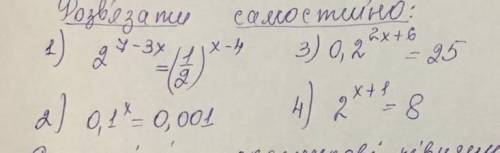 Розв'язати самостійно:
1) 2^{7-3x} = (1/2)^{x-4}
3) 0,2^{2x+6} = 25
2) 0,1^x = 0,001
4) 2^{x+1} = 8